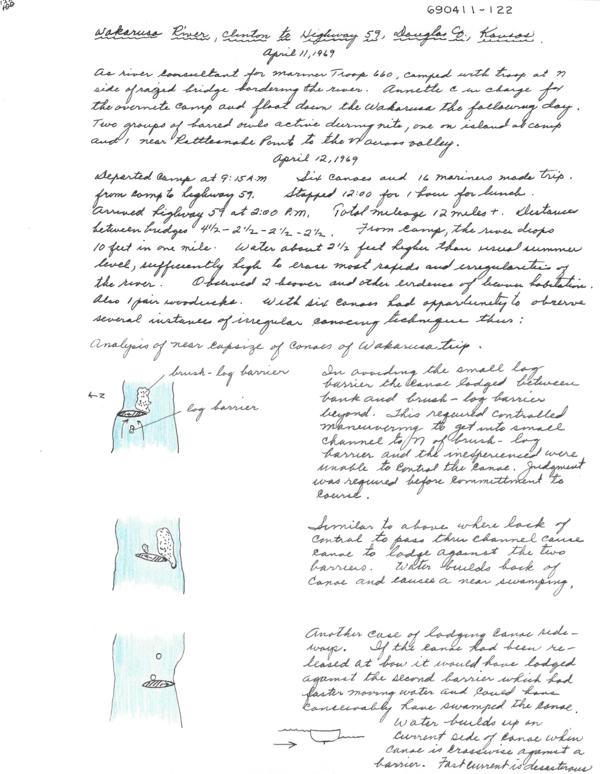 690411-122
122
Wakarusa River, Clinton to Highway 59, Douglas Co, Kansas.
April 11, 1969
As river consultant for mariner Troop 660, camped with troop at N
side of razed bridge bordering the river. Annette C in charge for
the overnite camp and float down the Wakarusa the following day.
Two groups of barred owls active during nite, one on island at camp
and 1 near Rattlesnake Point to the N across valley.
April 12, 1969
Departed Camp at 9:15 A.M Six Canoes and 16 mariners made trip
from Camp to highway 59. Stopped 12:00 for 1 hour for lunch.
Arrived highway 59 at 2:00 P.M. Total mileage 12 miles +. Distances
between bridges 4½ - 2½ - 2½ - 2½. From Camp, the river drops
10 feet in one mile. Water about 2½ feet higher than usual summer
level, sufficiently high to erase most rapids and irregularities of
the river. Observed 2 beaver and other evidence of beaver habitation.
Also 1 pair woodducks. With six canoes had opportunity to observe
several instances of irregular canoeing technique thus:
Analysis of near capsize of Canoes of Wakarusa trip.
brush-log barrier
log barrier
← N
In avoiding the small log
barrier the canoe lodged between
bank and brush-log barrier
beyond. This required controlled
maneuvering to get into small
channel to N of brush-log
barrier and the inexperienced were
unable to control the canoe. Judgment
was required before committment to
course.
Similar to above where lack of
control to pass thru channel cause
canoe to lodge against the two
barriers. Water builds back of
canoe and causes a near swamping.
Another case of lodging canoe side-
ways. If the canoe had been re-
leased at bow it would have lodged
against the second barrier which had
faster moving water and could have
conceivably have swamped the canoe.
Water builds up on
current side of canoe when
canoe is crosswise against a
barrier. Fast current is disasterous